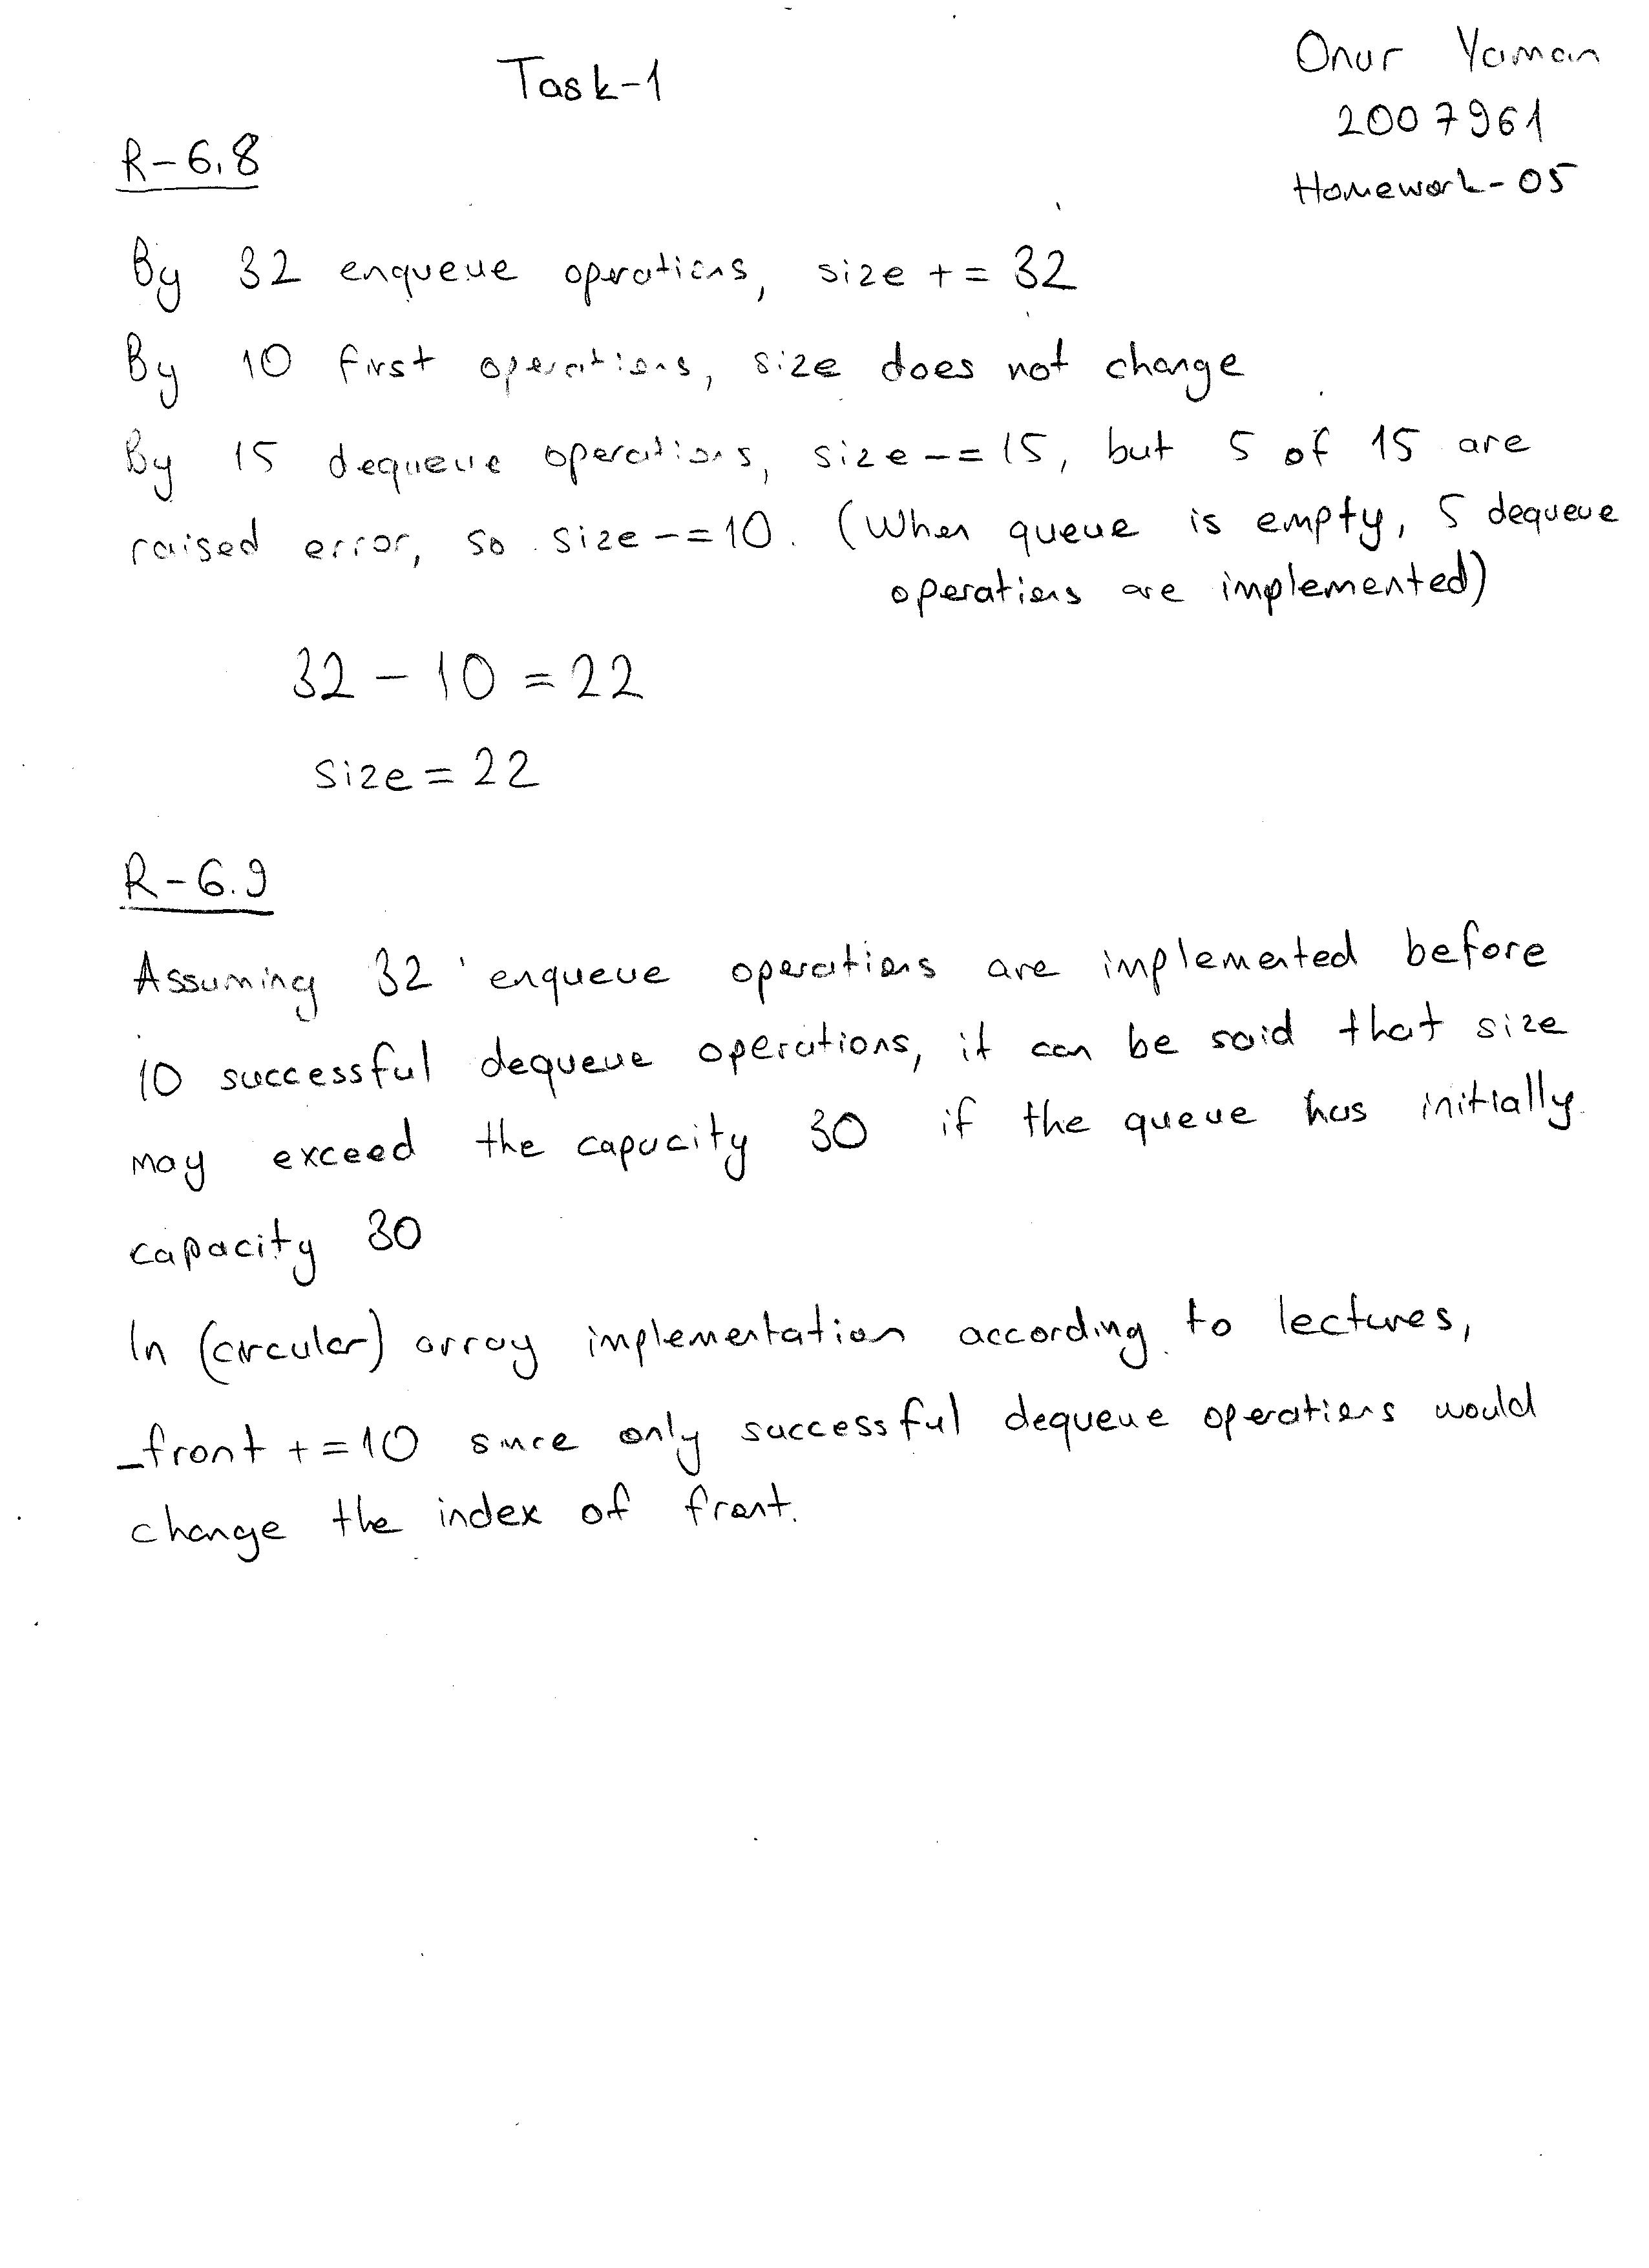 Task-1
Onur Yaman
2007961
Homework-05
R-6.8
By 32 enqueue operations, size += 32
By 10 first operations, size does not change
By 15 dequeue operations, size -= 15, but 5 of 15 are
raised error, so size -= 10. (When queue is empty, 5 dequeue
operations are implemented)
32 - 10 = 22
size = 22
R-6.9
Assuming 32 enqueue operations are implemented before
10 successful dequeue operations, it can be said that size
may exceed the capacity 30 if the queue has initially
capacity 30
In (circular) array implementation according to lectures,
_front += 10 since only successful dequeue operations would
change the index of front.